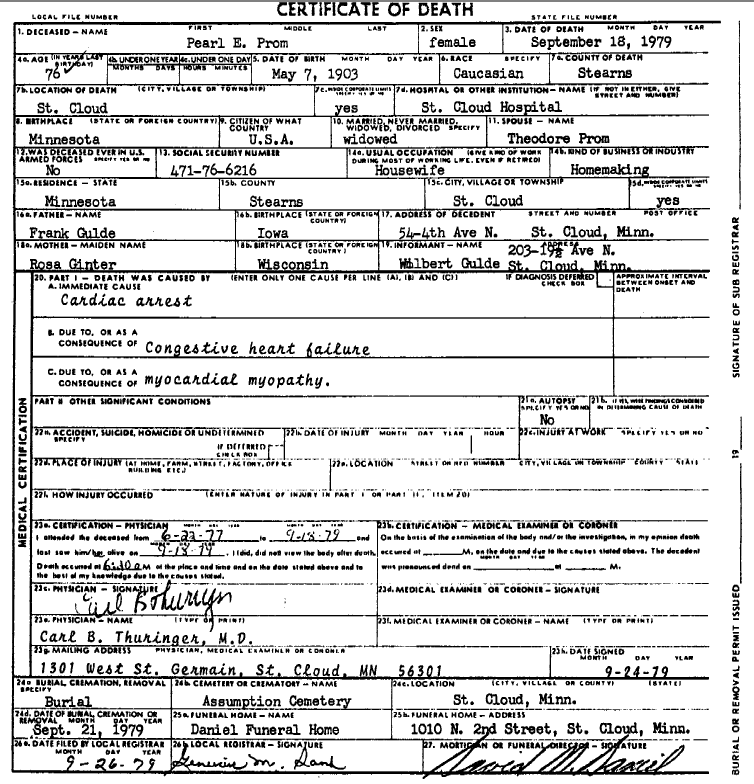 CERTIFICATE OF DEATH
LOCAL FILE NUMBER STATE FILE NUMBER
1. DECEASED – NAME FIRST MIDDLE LAST 2. SEX 3. DATE OF DEATH MONTH DAY YEAR
Pearl E. Prom female September 18, 1979
4a. AGE (IN YEARS LAST BIRTHDAY) 4b. UNDER ONE YEAR 4c. UNDER ONE DAY 5. DATE OF BIRTH MONTH DAY YEAR 6. RACE SPECIFY 7a. COUNTY OF DEATH
MONTHS DAYS HOURS MINUTES
76 May 7, 1903 Caucasian Stearns
7b. LOCATION OF DEATH (CITY, VILLAGE OR TOWNSHIP) 7c. INSIDE CORPORATE LIMITS 7d. HOSPITAL OR OTHER INSTITUTION – NAME (IF NOT IN EITHER, GIVE STREET AND NUMBER)
St. Cloud yes St. Cloud Hospital
8. BIRTHPLACE (STATE OR FOREIGN COUNTRY) 9. CITIZEN OF WHAT COUNTRY 10. MARRIED, NEVER MARRIED, WIDOWED, DIVORCED SPECIFY 11. SPOUSE – NAME
Minnesota U.S.A. widowed Theodore Prom
12. WAS DECEASED EVER IN U.S. ARMED FORCES SPECIFY YES OR NO 13. SOCIAL SECURITY NUMBER 14a. USUAL OCCUPATION (GIVE KIND OF WORK DURING MOST OF WORKING LIFE, EVEN IF RETIRED) 14b. KIND OF BUSINESS OR INDUSTRY
No 471-76-6216 Housewife Homemaking
15a. RESIDENCE – STATE 15b. COUNTY 15c. CITY, VILLAGE OR TOWNSHIP 15d. INSIDE CORPORATE LIMITS
Minnesota Stearns St. Cloud yes
16a. FATHER – NAME 16b. BIRTHPLACE (STATE OR FOREIGN COUNTRY) 17. ADDRESS OF DECEDENT STREET AND NUMBER POST OFFICE
Frank Gulde Iowa 54-4th Ave N. St. Cloud, Minn.
18a. MOTHER – MAIDEN NAME 18b. BIRTHPLACE (STATE OR FOREIGN COUNTRY) 19. INFORMANT – NAME ADDRESS
203- Ave N.
Rosa Ginter Wisconsin Wilbert Gulde St. Cloud, Minn.
20. PART I – DEATH WAS CAUSED BY (ENTER ONLY ONE CAUSE PER LINE (A), (B) AND (C)) IF DIAGNOSIS DEFERRED CHECK BOX APPROXIMATE INTERVAL BETWEEN ONSET AND DEATH
A. IMMEDIATE CAUSE
Cardiac arrest
B. DUE TO, OR AS A
CONSEQUENCE OF Congestive heart failure
C. DUE TO, OR AS A
CONSEQUENCE OF myocardial myopathy.
PART II OTHER SIGNIFICANT CONDITIONS 21a. AUTOPSY SPECIFY YES OR NO 21b. IF YES, WERE FINDINGS CONSIDERED IN DETERMINING CAUSE OF DEATH
No
22a. ACCIDENT, SUICIDE, HOMICIDE OR UNDETERMINED SPECIFY IF DEFERRED CHECK BOX 22b. DATE OF INJURY MONTH DAY YEAR HOUR 22c. INJURY AT WORK SPECIFY YES OR NO
22d. PLACE OF INJURY (AT HOME, FARM, STREET, FACTORY, OFFICE BUILDING ETC.) 22e. LOCATION STREET OR RFD NUMBER CITY, VILLAGE OR TOWNSHIP COUNTY STATE
22f. HOW INJURY OCCURRED (ENTER NATURE OF INJURY IN PART I OR PART II, ITEM 20)
23a. CERTIFICATION – PHYSICIAN 23b. CERTIFICATION – MEDICAL EXAMINER OR CORONER
I attended the deceased from 6-22-77 to 9-18-79 and On the basis of the examination of the body and/or the investigation, in my opinion death
last saw him/her alive on 9-18-79. I did, did not view the body after death. occurred at M, on the date and due to the causes stated above. The decedent
Death occurred at M at the place and time and on the date stated above and to was pronounced dead on at M.
the best of my knowledge due to the causes stated.
23c. PHYSICIAN – SIGNATURE 23d. MEDICAL EXAMINER OR CORONER – SIGNATURE
23e. PHYSICIAN – NAME (TYPE OR PRINT) 23f. MEDICAL EXAMINER OR CORONER – NAME (TYPE OR PRINT)
Carl B. Thuringer, M.D.
23g. MAILING ADDRESS PHYSICIAN, MEDICAL EXAMINER OR CORONER 23h. DATE SIGNED MONTH DAY YEAR
1301 West St. Germain, St. Cloud, MN 56301 9-24-79
24a. BURIAL, CREMATION, REMOVAL SPECIFY 24b. CEMETERY OR CREMATORY – NAME 24c. LOCATION (CITY, VILLAGE OR COUNTY) (STATE)
Burial Assumption Cemetery St. Cloud, Minn.
24d. DATE OF BURIAL, CREMATION OR REMOVAL MONTH DAY YEAR 25a. FUNERAL HOME – NAME 25b. FUNERAL HOME – ADDRESS
Sept. 21, 1979 Daniel Funeral Home 1010 N. 2nd Street, St. Cloud, Minn.
26a. DATE FILED BY LOCAL REGISTRAR MONTH DAY YEAR 26b. LOCAL REGISTRAR – SIGNATURE 27. MORTICIAN OR FUNERAL DIRECTOR – SIGNATURE
9-26-79
MEDICAL CERTIFICATION
SIGNATURE OF SUB REGISTRAR
19
BURIAL OR REMOVAL PERMIT ISSUED